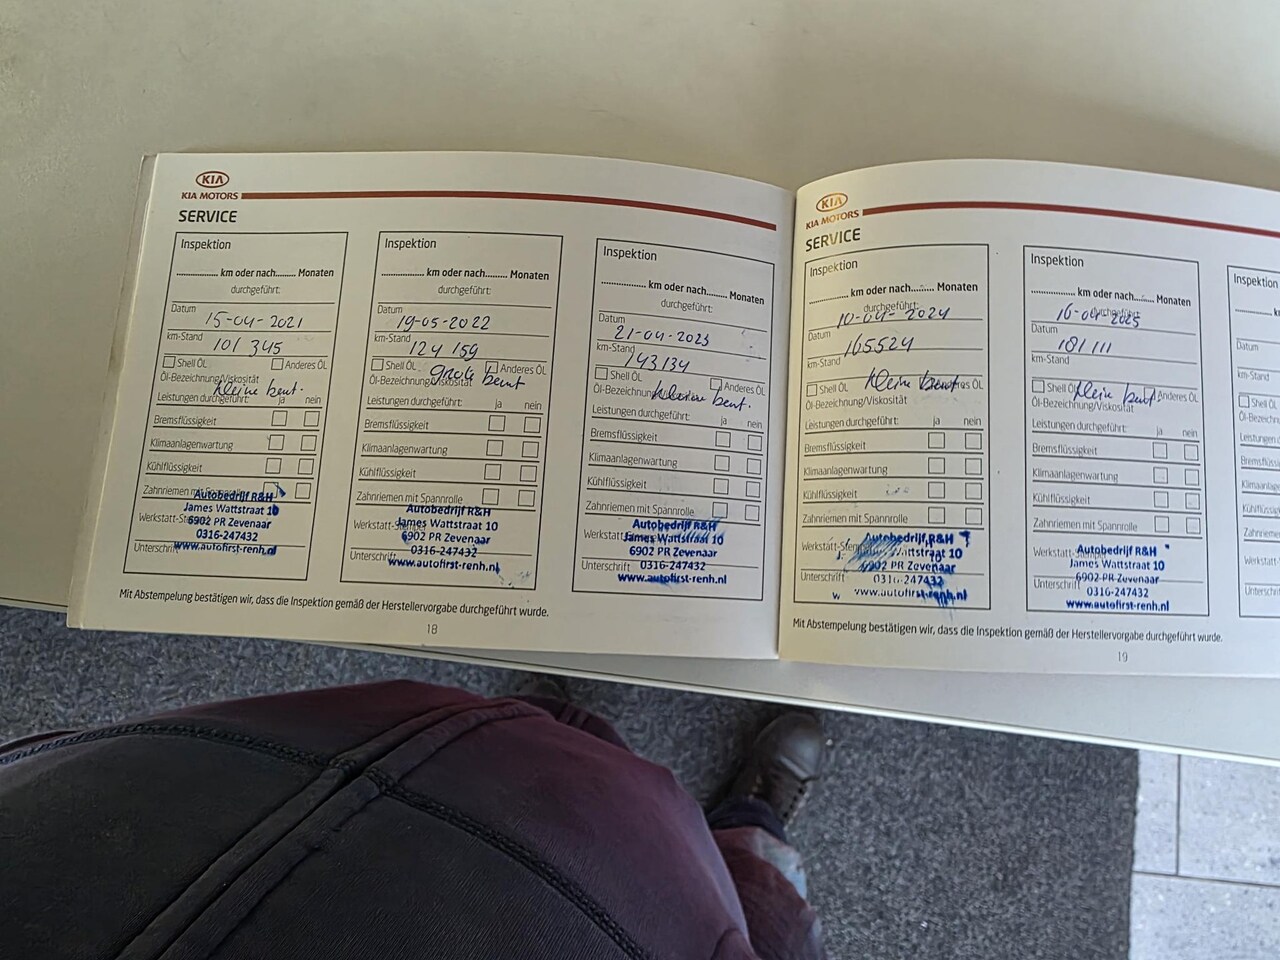 KIA
KIA MOTORS
SERVICE
Inspektion
.................. km oder nach......... Monaten
durchgeführt:
Datum
15-04-2021
km-Stand
101 345
Shell Öl Anderes Öl
Öl-Bezeichnung/Viskosität
kleine beurt.
Leistungen durchgeführt: ja nein
Bremsflüssigkeit
Klimaanlagenwartung
Kühlflüssigkeit
Zahnriemen mit
Autobedrijf R&H
James Wattstraat 10
6902 PR Zevenaar
0316-247432
www.autofirst-renh.nl
Unterschrift
Inspektion
.................. km oder nach......... Monaten
durchgeführt:
Datum
19-05-2022
km-Stand
124 159
Shell Öl Anderes Öl
grote beurt
Öl-Bezeichnung/Viskosität
Leistungen durchgeführt: ja nein
Bremsflüssigkeit
Klimaanlagenwartung
Kühlflüssigkeit
Zahnriemen mit Spannrolle
Autobedrijf R&H
James Wattstraat 10
6902 PR Zevenaar
0316-247432
www.autofirst-renh.nl
Unterschrift
Inspektion
.................. km oder nach......... Monaten
durchgeführt:
Datum
21-04-2023
km-Stand
143134
Shell Öl Anderes Öl
Öl-Bezeichnung/Viskosität
kleine beurt.
Leistungen durchgeführt: ja nein
Bremsflüssigkeit
Klimaanlagenwartung
Kühlflüssigkeit
Zahnriemen mit Spannrolle
Autobedrijf R&H
James Wattstraat 10
6902 PR Zevenaar
0316-247432
www.autofirst-renh.nl
Unterschrift
Mit Abstempelung bestätigen wir, dass die Inspektion gemäß der Herstellervorgabe durchgeführt wurde.
18
KIA
KIA MOTORS
SERVICE
Inspektion
.................. km oder nach......... Monaten
durchgeführt:
10-04-2024
Datum
165524
km-Stand
Shell Öl Anderes Öl
kleine beurt
Öl-Bezeichnung/Viskosität
Leistungen durchgeführt: ja nein
Bremsflüssigkeit
Klimaanlagenwartung
Kühlflüssigkeit
Zahnriemen mit Spannrolle
Werkstatt-Stempel
Autobedrijf R&H
Wattstraat 10
6902 PR Zevenaar
0316-247432
www.autofirst-renh.nl
Unterschrift
Inspektion
.................. km oder nach......... Monaten
durchgeführt:
16-04-2025
Datum
181111
km-Stand
Shell Öl Anderes Öl
kleine beurt
Öl-Bezeichnung/Viskosität
Leistungen durchgeführt: ja nein
Bremsflüssigkeit
Klimaanlagenwartung
Kühlflüssigkeit
Zahnriemen mit Spannrolle
Werkstatt-Stempel
Autobedrijf R&H
James Wattstraat 10
6902 PR Zevenaar
0316-247432
www.autofirst-renh.nl
Unterschrift
Inspektion
Datum
km-Stand
Shell Öl
Mit Abstempelung bestätigen wir, dass die Inspektion gemäß der Herstellervorgabe durchgeführt wurde.
19